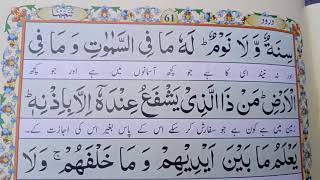 61
سِنَةٌ وَّلَا نَوْمٌ ؕ لَهٗ مَا فِی السَّمٰوٰتِ وَمَا فِی
اور نہ نیند اسی کا ہے جو کچھ آسمانوں میں ہے اور جو کچھ
الْاَرْضِ ؕ مَنْ ذَا الَّذِیْ یَشْفَعُ عِنْدَهٗۤ اِلَّا بِاِذْنِهٖ ؕ
زمین میں ہے کون ہے جو سفارش کر سکے اس کے پاس بغیر اس کی اجازت کے۔
یَعْلَمُ مَا بَیْنَ اَیْدِیْهِمْ وَمَا خَلْفَهُمْ ۚ وَلَا